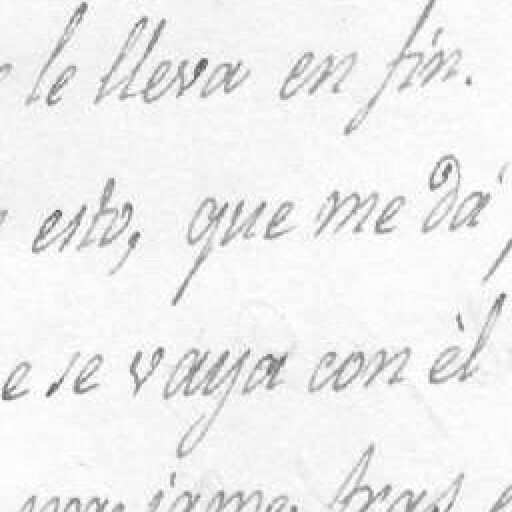 le lleva en fin.
esto, que me dá
e se vaya con èl
tras